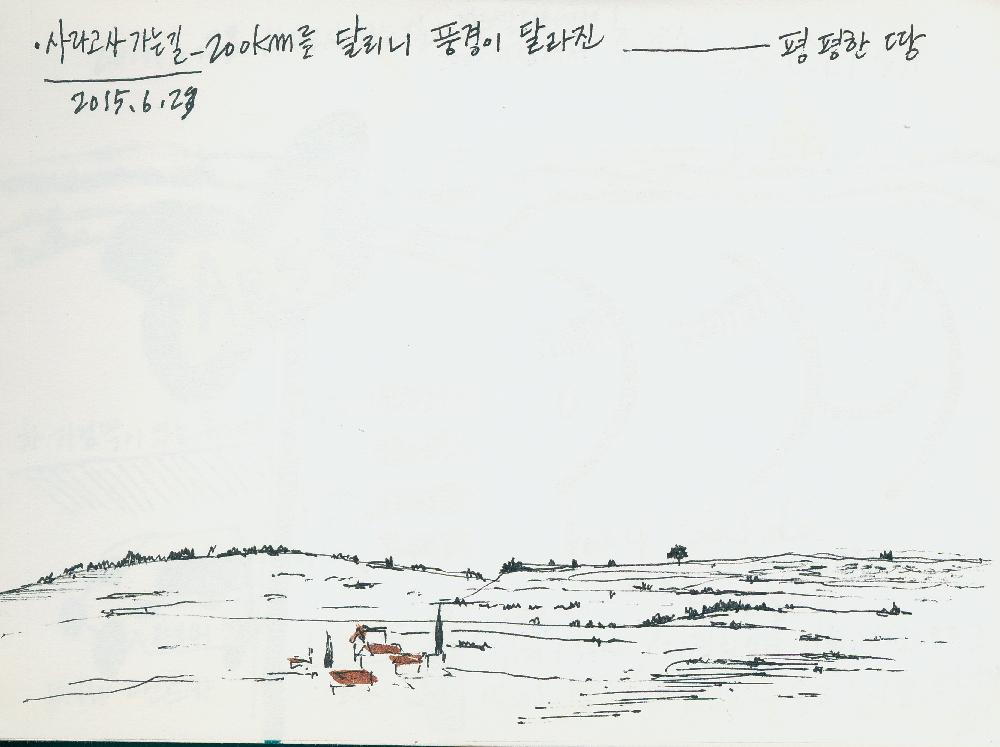 ·사라고사 가는길_200km를 달리니 풍경이 달라진 ——— 평평한 땅
2015.6.29